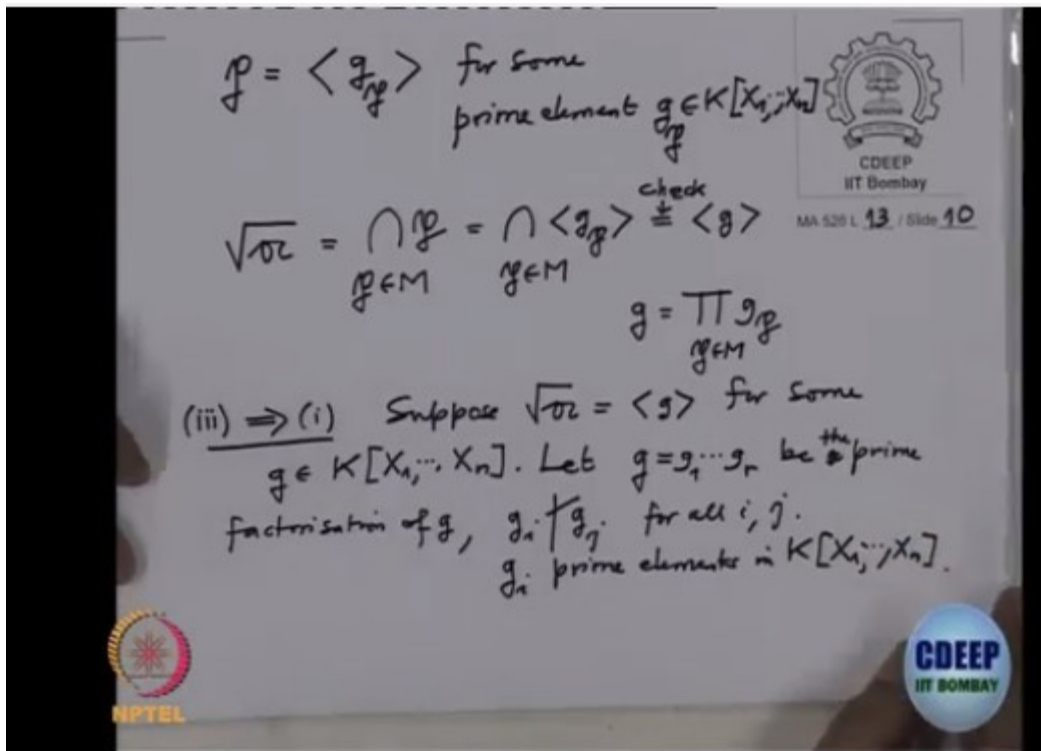 𝔭 = <g_𝔭> for some
prime element g_𝔭 ∈ K[X₁,…,Xₙ]
CDEEP
IIT Bombay
MA 526 L 13 / Slide 10
√𝔞 = ⋂_{𝔭∈M} 𝔭 = ⋂_{𝔭∈M} <g_𝔭> = <g>
check
g = ∏_{𝔭∈M} g_𝔭
(iii) ⟹ (i) Suppose √𝔞 = <g> for some
g ∈ K[X₁,…,Xₙ]. Let g = g₁⋯gᵣ be the prime
factorisation of g, gᵢ ∤ gⱼ for all i, j.
gᵢ prime elements in K[X₁,…,Xₙ].
NPTEL
CDEEP
IIT BOMBAY